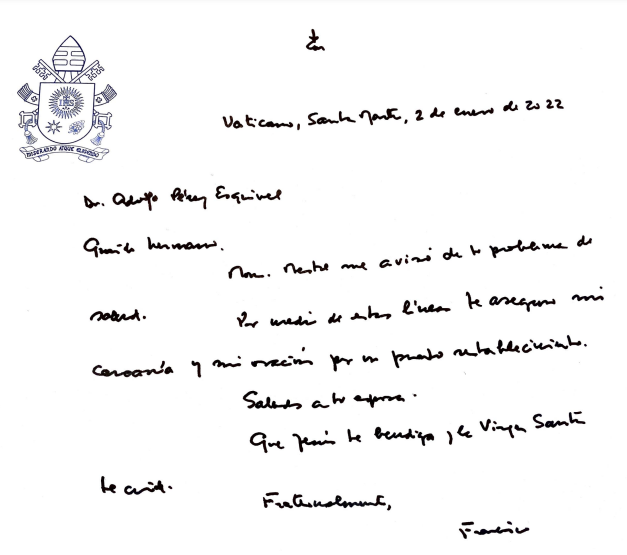 IHS
MISERANDO ATQUE ELIGENDO
Vaticano, Santa Marta, 2 de enero de 2022
Dr. Adolfo Pérez Esquivel
Querido hermano.
Mon. Mestre me avisó de tu problema de
salud. Por medio de estas líneas te aseguro mi
cercanía y mi oración por un pronto restablecimiento.
Saludos a tu esposa.
Que Jesús te bendiga y la Virgen Santa
te cuide.
Fraternalmente,
Francisco